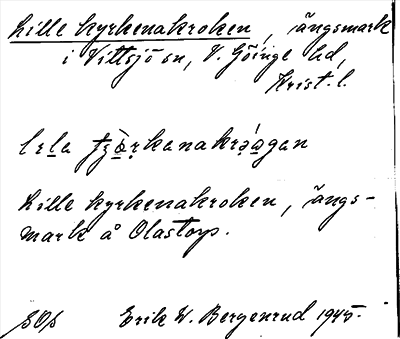 Lille kyrkenakroken, ängsmark
i Vittsjö sn, V. Göinge hd,
Krist. l.
Lille kyrkenakroken, ängs-
mark å Olastorp.
SOS Erik W. Bergenrud 1945.